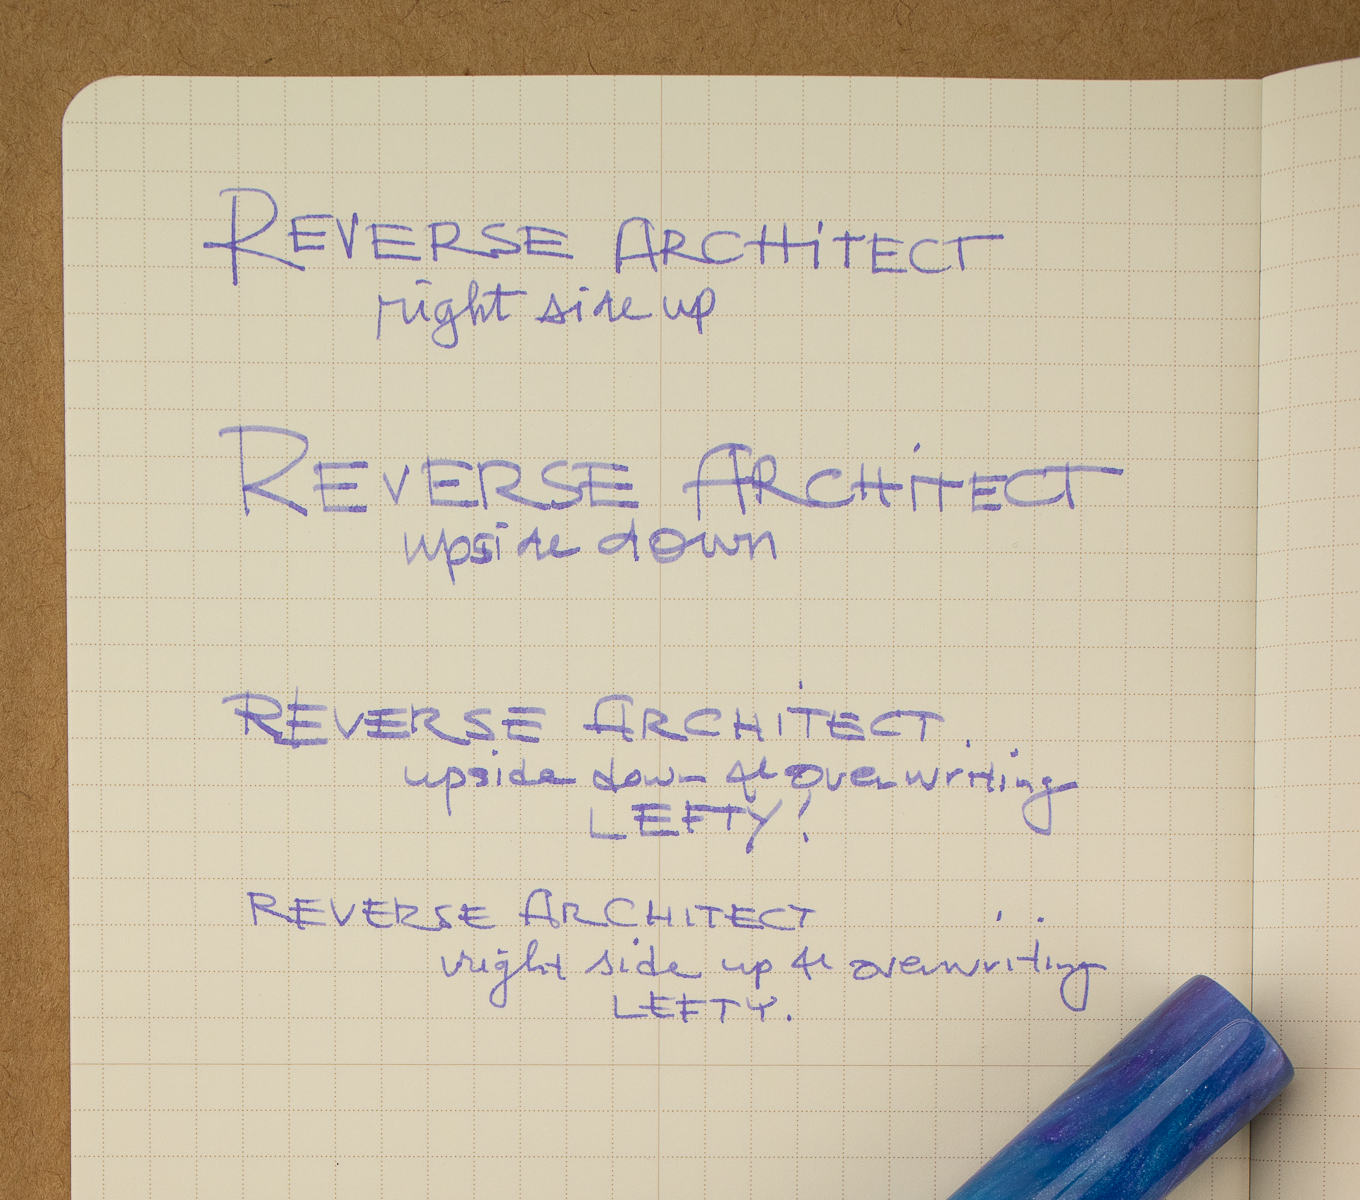 REVERSE ARCHITECT
right side up
REVERSE ARCHITECT
upside down
REVERSE ARCHITECT.
upside down 4 overwriting
LEFTY?
REVERSE ARCHITECT
right side up 4 overwriting
LEFTY.